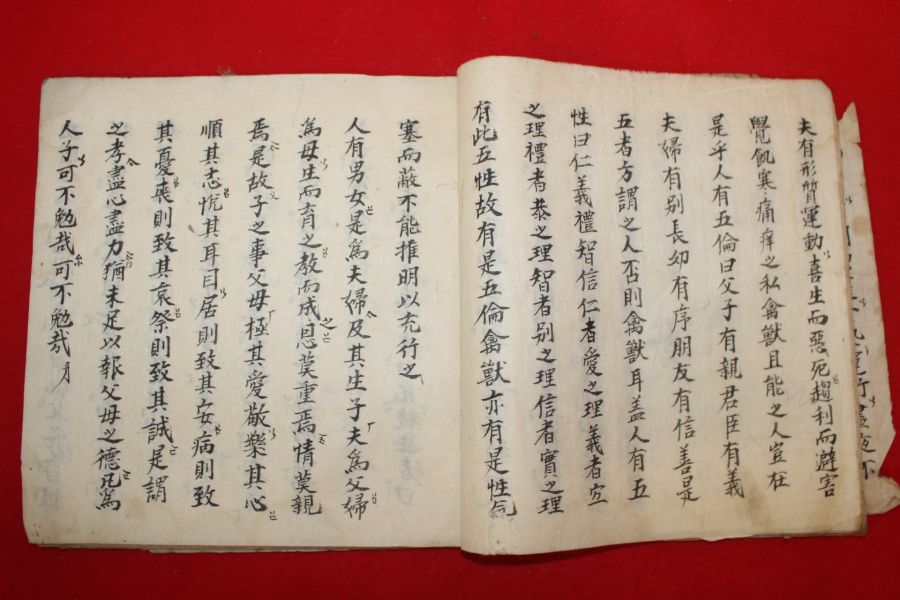 夫有形質運動喜生而惡死趨利而避害
覺飢寒痛痒之私禽獸且能之人豈在
是乎人有五倫曰父子有親君臣有義
夫婦有別長幼有序朋友有信善是
五者方謂之人否則禽獸耳盖人有五
性曰仁義禮智信仁者愛之理義者宜
之理禮者恭之理智者别之理信者實之理
有此五性故有是五倫禽獸亦有是性气
塞而蔽不能推明以充行之
人有男女是爲夫婦及其生子夫爲父婦
爲母生而育之教而成恩莫重焉情莫親
焉是故子之事父母極其愛敬樂其心
順其志悅其耳目居則致其安病則致
其憂喪則致其哀祭則致其誠是謂
之孝盡心盡力猶未足以報父母之德凡爲
人子可不勉哉可不勉哉